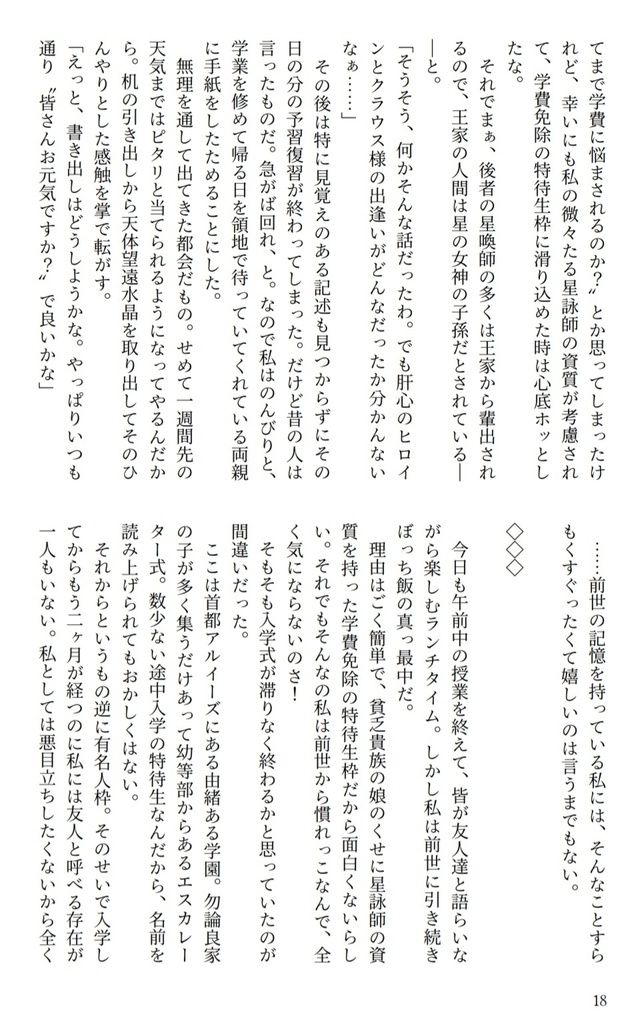 てまで学費に悩まされるのか？〟とか思ってしまったけ
れど、幸いにも私の微々たる星詠師の資質が考慮され
て、学費免除の特待生枠に滑り込めた時は心底ホッとし
たな。
　それでまぁ、後者の星喚師の多くは王家から輩出され
るので、王家の人間は星の女神の子孫だとされている―
―と。
「そうそう、何かそんな話だったわ。でも肝心のヒロイ
ンとクラウス様の出逢いがどんなだったか分かんない
なぁ……」
　その後は特に見覚えのある記述も見つからずにその
日の分の予習復習が終わってしまった。だけど昔の人は
言ったものだ。急がば回れ、と。なので私はのんびりと、
学業を修めて帰る日を領地で待っていてくれている両親
に手紙をしたためることにした。
　無理を通して出てきた都会だもの。せめて一週間先の
天気まではピタリと当てられるようになってやるんだか
ら。机の引き出しから天体望遠水晶を取り出してそのひ
んやりとした感触を掌で転がす。
「えっと、書き出しはどうしようかな。やっぱりいつも
通り〝皆さんお元気ですか？〟で良いかな」
　……前世の記憶を持っている私には、そんなことすら
もくすぐったくて嬉しいのは言うまでもない。
◇◇◇
　今日も午前中の授業を終えて、皆が友人達と語らいな
がら楽しむランチタイム。しかし私は前世に引き続き
ぼっち飯の真っ最中だ。
　理由はごく簡単で、貧乏貴族の娘のくせに星詠師の資
質を持った学費免除の特待生枠だから面白くないらし
い。それでもそんなの私は前世から慣れっこなんで、全
く気にならないのさ！
　そもそも入学式が滞りなく終わるかと思っていたのが
間違いだった。
　ここは首都アルイーズにある由緒ある学園。勿論良家
の子が多く集うだけあって幼等部からあるエスカレー
ター式。数少ない途中入学の特待生なんだから、名前を
読み上げられてもおかしくはない。
　それからというもの逆に有名人枠。そのせいで入学し
てからもう二ヶ月が経つのに私には友人と呼べる存在が
一人もいない。私としては悪目立ちしたくないから全く
18